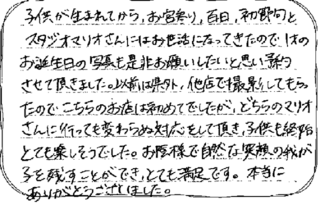 子供が生まれてから、お宮参り、百日、初節句と
スタジオマリオさんにはお世話になってきたので1才の
お誕生日の写真も是非お願いしたいと思い予約
させて頂きました。以前は県外、他店で撮影してもらっ
たのでこちらのお店は初めてでしたが、どちらのマリオ
さんに行っても変わらぬ対応をして頂き、子供も終始
とても楽しそうでした。お陰様で自然な笑顔の我が
子を残すことができ、とても満足です。本当に
ありがとうございました。